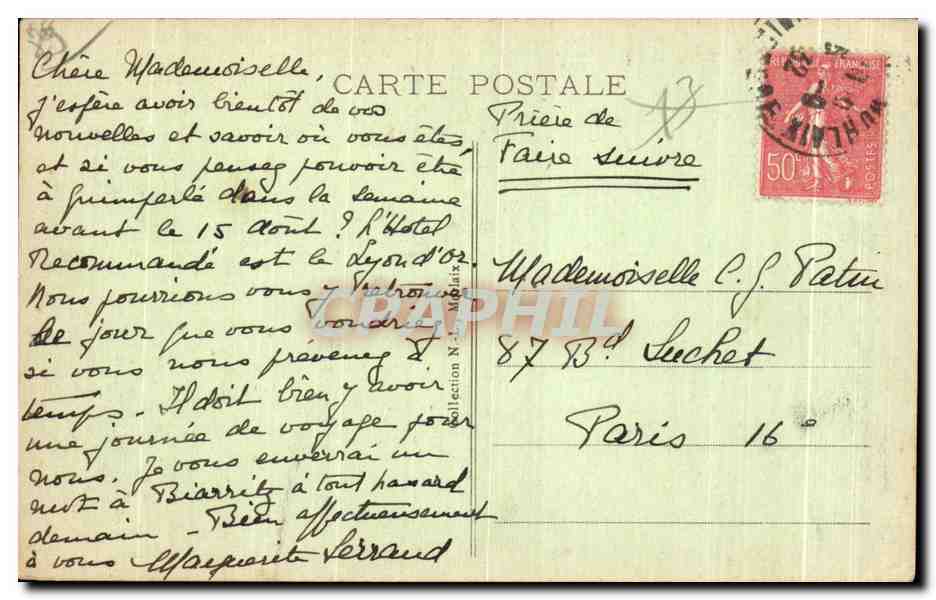 Chère Mademoiselle,
j'espère avoir bientôt de vos
nouvelles et savoir où vous êtes,
et si vous pensez pouvoir être
à Quimperlé dans la semaine
avant le 15 Août ? L'Hotel
Recommandé est le Lyon d'Or.
Nous pourrions vous y retrouver
le jour que vous voudriez
si vous nous prévenez à
temps. Il doit bien y avoir
une journée de voyage pour
nous. Je vous enverrai un
mot à Biarritz à tout hasard
demain - Bien affectueusement
à vous Marguerite Serrand
CARTE POSTALE
Prière de
Faire suivre
Mademoiselle C. G. Patin
87 Bd. Suchet
Paris 16e
Collection N.-L., Morlaix
FRANÇAISE
50c
POSTES
32
CPAPHIL